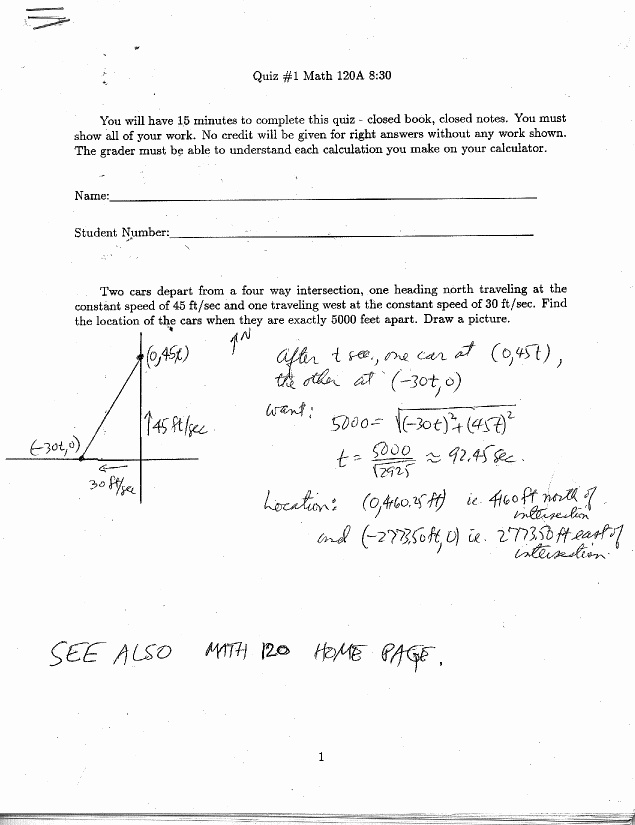 Quiz #1 Math 120A 8:30
You will have 15 minutes to complete this quiz - closed book, closed notes. You must
show all of your work. No credit will be given for right answers without any work shown.
The grader must be able to understand each calculation you make on your calculator.
Name:
Student Number:
Two cars depart from a four way intersection, one heading north traveling at the
constant speed of 45 ft/sec and one traveling west at the constant speed of 30 ft/sec. Find
the location of the cars when they are exactly 5000 feet apart. Draw a picture.
(0,45t)
N
After t sec., one car at (0,45t),
the other at (-30t,0)
want:
5000 = √(-30t)²+(45t)²
45 ft/sec
(-30t,0)
30 ft/sec
t = 5000/√2925 ≈ 92.45 sec.
Location: (0,4160.25ft) ie. 4160 ft north of
intersection
and (-2773.50ft,0) ie. 2773.50 ft east of
intersection.
SEE ALSO MATH 120 HOME PAGE.
1